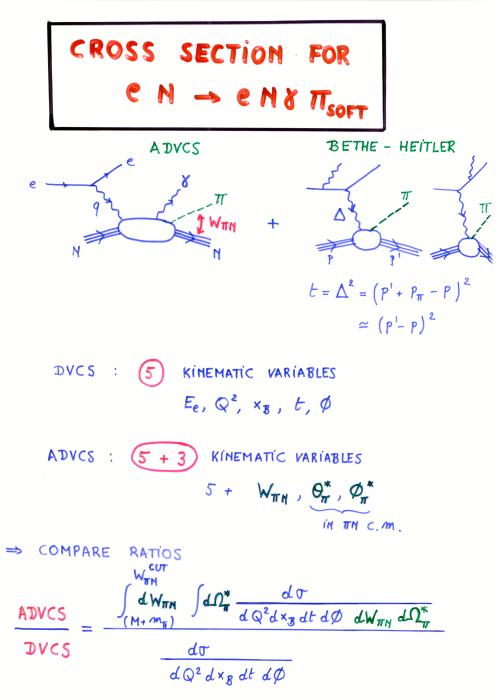 CROSS SECTION FOR
e N → e N γ π_SOFT
ADVCS
BETHE - HEITLER
e e γ π
q W_πN
N N
+
π Δ p p'
π
t = Δ² = (p' + p_π - p)²
≃ (p' - p)²
DVCS : 5 KINEMATIC VARIABLES
E_e, Q², x_B, t, Ø
ADVCS : 5 + 3 KINEMATIC VARIABLES
5 + W_πN, θ*_π, Ø*_π
IN πN C.M.
⇒ COMPARE RATIOS
ADVCS / DVCS = ∫_(M+m_π)^W_πN^CUT dW_πN ∫dΩ*_π dσ / dQ² dx_B dt dØ dW_πN dΩ*_π
dσ / dQ² dx_B dt dØ